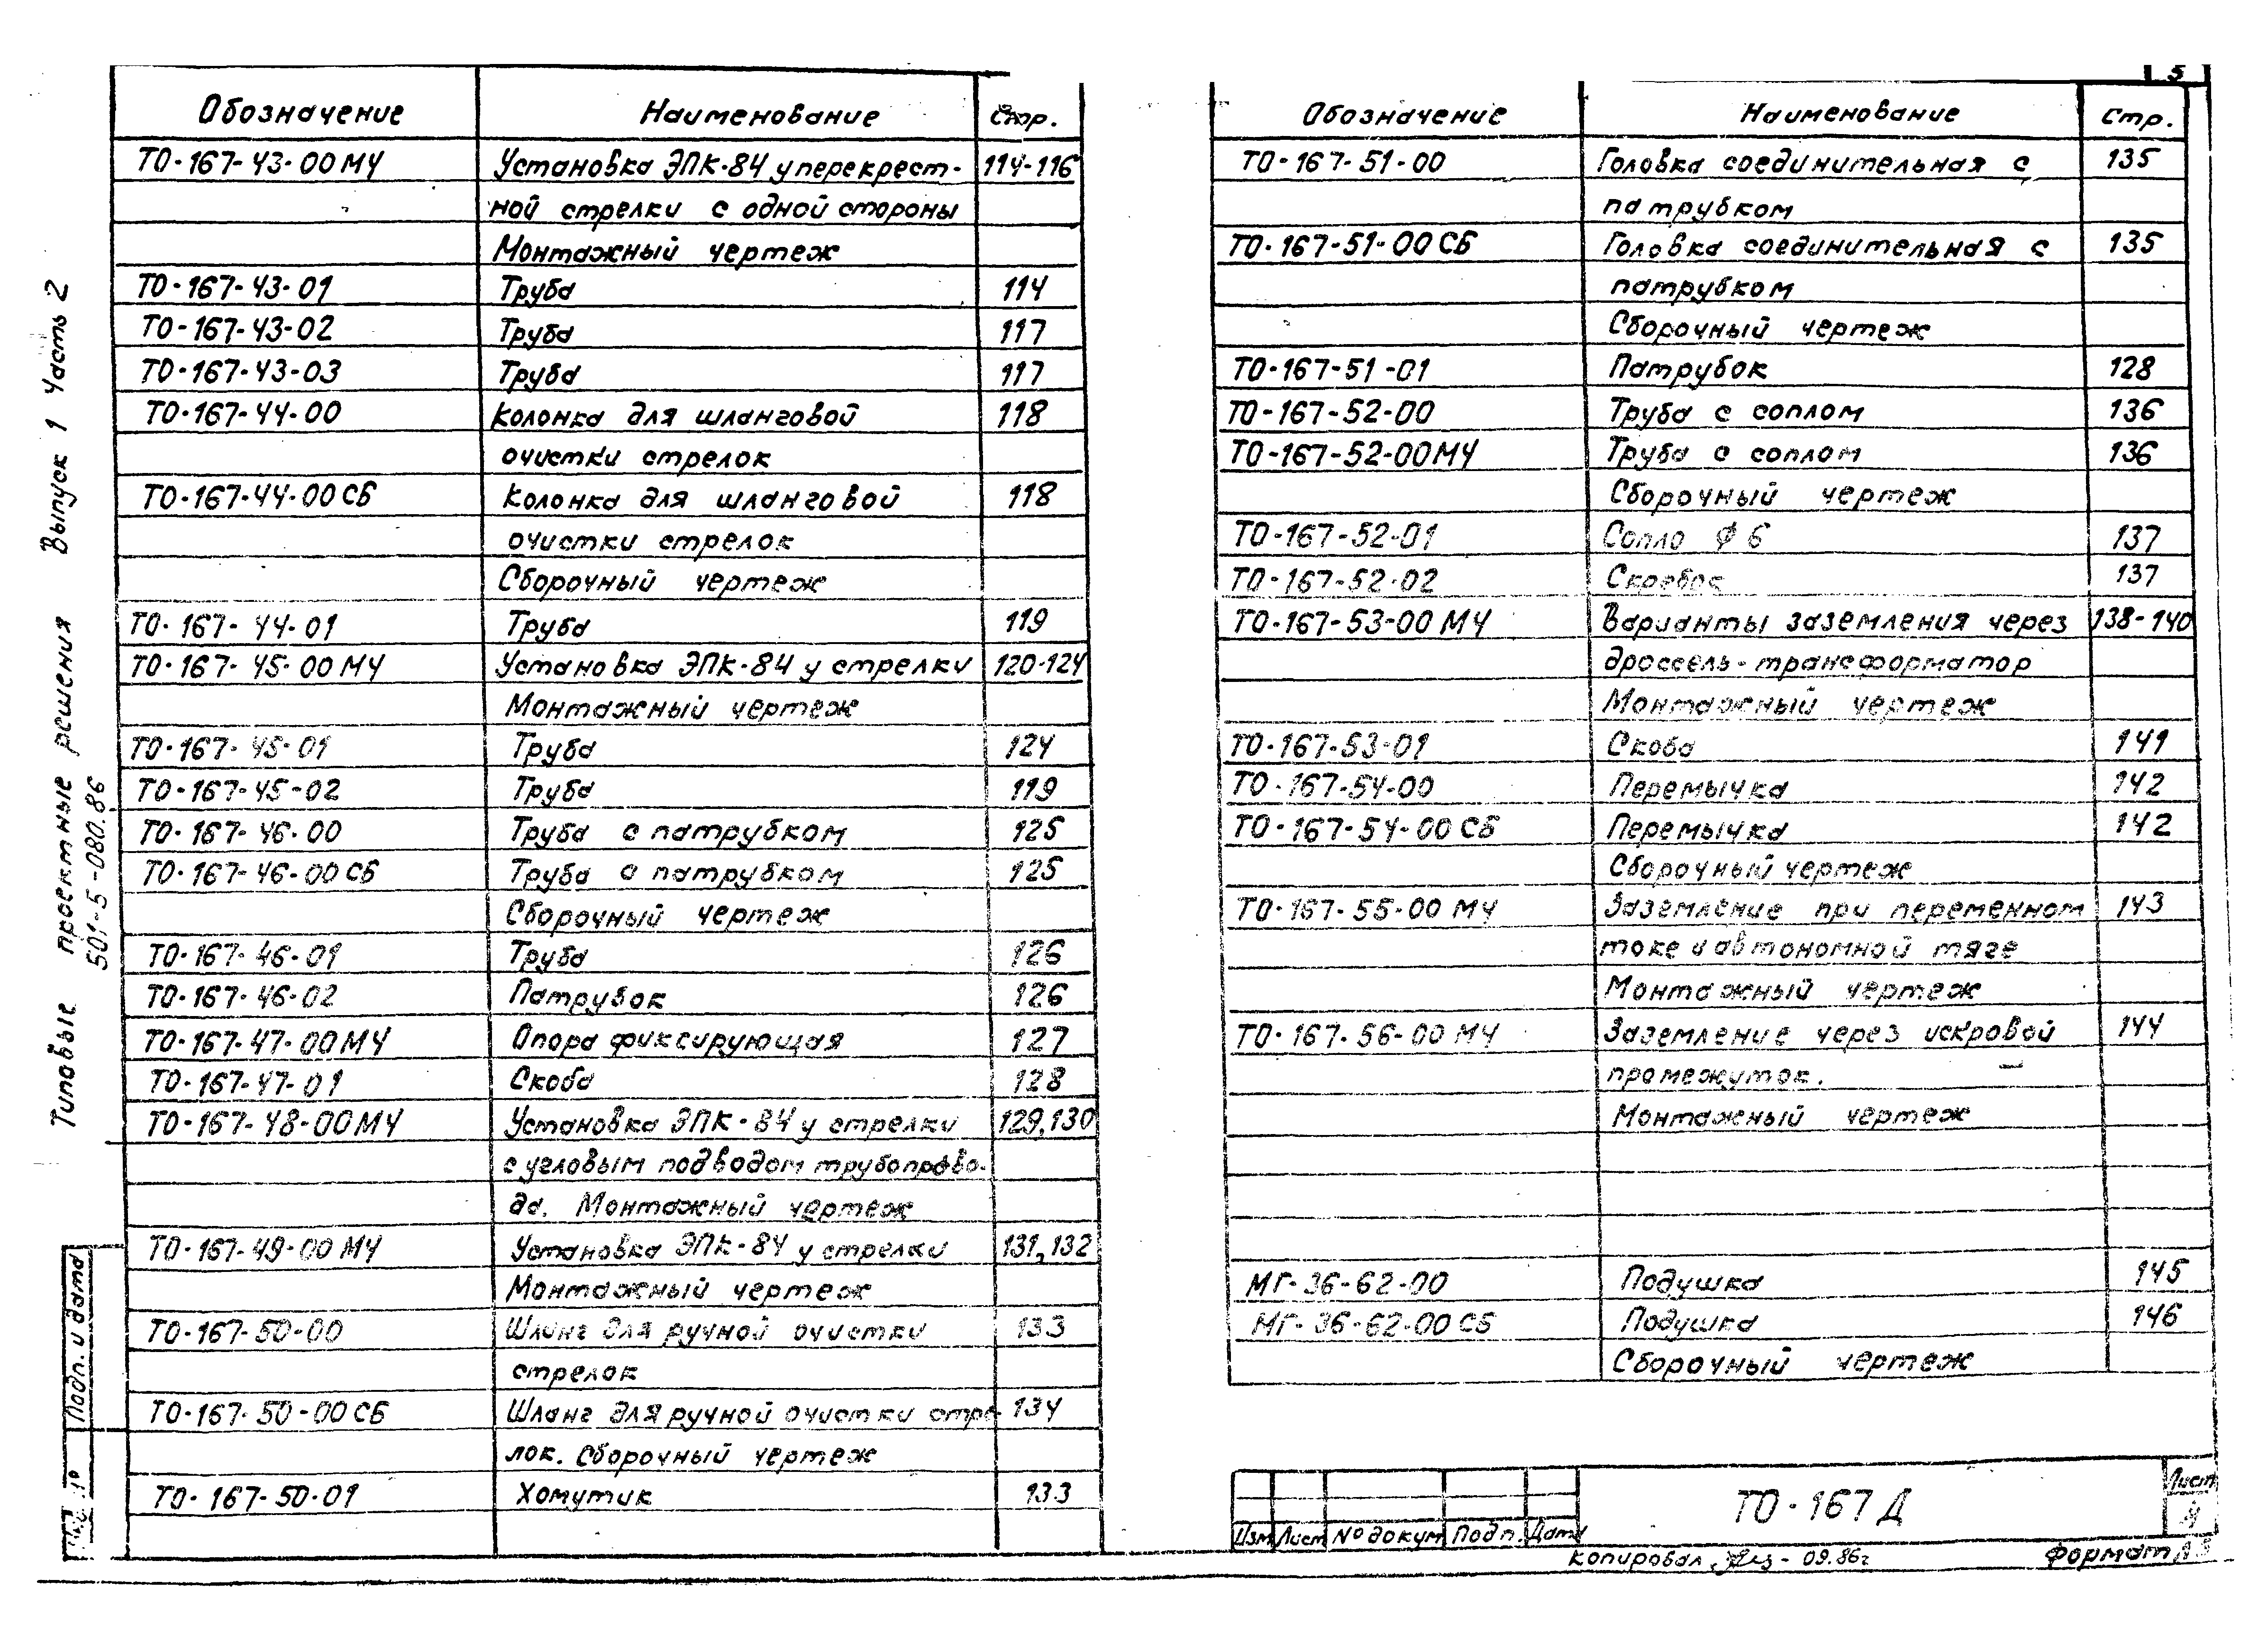 5
Типовые проектные решения Выпуск 1 Часть 2
501-5-080.86
Подп. и дата
Обозначение Наименование Стр.
ТО-167-43-00МЧ Установка ЭПК-84 у перекрест- 114-116
ной стрелки с одной стороны
Монтажный чертеж
ТО-167-43-01 Труба 114
ТО-167-43-02 Труба 117
ТО-167-43-03 Труба 117
ТО-167-44-00 Колонка для шланговой 118
очистки стрелок
ТО-167-44-00СБ Колонка для шланговой 118
очистки стрелок
Сборочный чертеж
ТО-167-44-01 Труба 119
ТО-167-45-00МЧ Установка ЭПК-84 у стрелки 120-124
Монтажный чертеж
ТО-167-45-01 Труба 124
ТО-167-45-02 Труба 119
ТО-167-46-00 Труба с патрубком 125
ТО-167-46-00СБ Труба с патрубком 125
Сборочный чертеж
ТО-167-46-01 Труба 126
ТО-167-46-02 Патрубок 126
ТО-167-47-00МЧ Опора фиксирующая 127
ТО-167-47-01 Скоба 128
ТО-167-48-00МЧ Установка ЭПК-84 у стрелки 129,130
с угловым подводом трубопрово-
да. Монтажный чертеж
ТО-167-49-00МЧ Установка ЭПК-84 у стрелки 131,132
Монтажный чертеж
ТО-167-50-00 Шланг для ручной очистки 133
стрелок
ТО-167-50-00СБ Шланг для ручной очистки стре- 134
лок. Сборочный чертеж
ТО-167-50-01 Хомутик 133
Обозначение Наименование Стр.
ТО-167-51-00 Головка соединительная с 135
патрубком
ТО-167-51-00СБ Головка соединительная с 135
патрубком
Сборочный чертеж
ТО-167-51-01 Патрубок 128
ТО-167-52-00 Труба с соплом 136
ТО-167-52-00МЧ Труба с соплом 136
Сборочный чертеж
ТО-167-52-01 Сопло ф 6 137
ТО-167-52-02 137
ТО-167-53-00МЧ Варианты заземления через 138-140
дроссель-трансформатор
Монтажный чертеж
ТО-167-53-01 Скоба 141
ТО-167-54-00 Перемычка 142
ТО-167-54-00СБ Перемычка 142
Сборочный чертеж
ТО-167-55-00МЧ Заземление при переменном 143
токе и автономной тяге
Монтажный чертеж
ТО-167-56-00МЧ Заземление через искровой 144
промежуток.
Монтажный чертеж
МГ-36-62-00 Подушка 145
МГ-36-62-00СБ Подушка 146
Сборочный чертеж
ТО-167Д
Лист
4
Изм Лист № докум Подп. Дата
Копировал 09.86г Формат А3